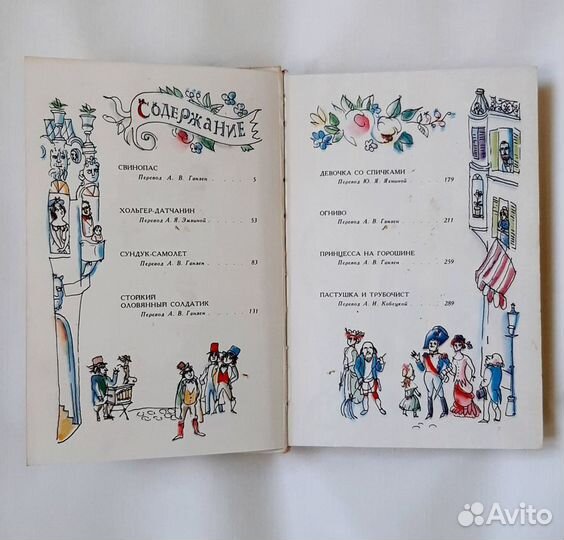 СОДЕРЖАНИЕ
СВИНОПАС
Перевод А. В. Ганзен . . . . . 5
ХОЛЬГЕР-ДАТЧАНИН
Перевод А. Я. Эмзиной . . . . 53
СУНДУК-САМОЛЕТ
Перевод А. В. Ганзен . . . . . 83
СТОЙКИЙ
ОЛОВЯННЫЙ СОЛДАТИК
Перевод А. В. Ганзен . . . . . 131
ДЕВОЧКА СО СПИЧКАМИ
Перевод Ю. Я. Яхниной . . . . 179
ОГНИВО
Перевод А. В. Ганзен . . . . . 211
ПРИНЦЕССА НА ГОРОШИНЕ
Перевод А. В. Ганзен . . . . . 259
ПАСТУШКА И ТРУБОЧИСТ
Перевод А. И. Кобецкой . . . . 289
Avito